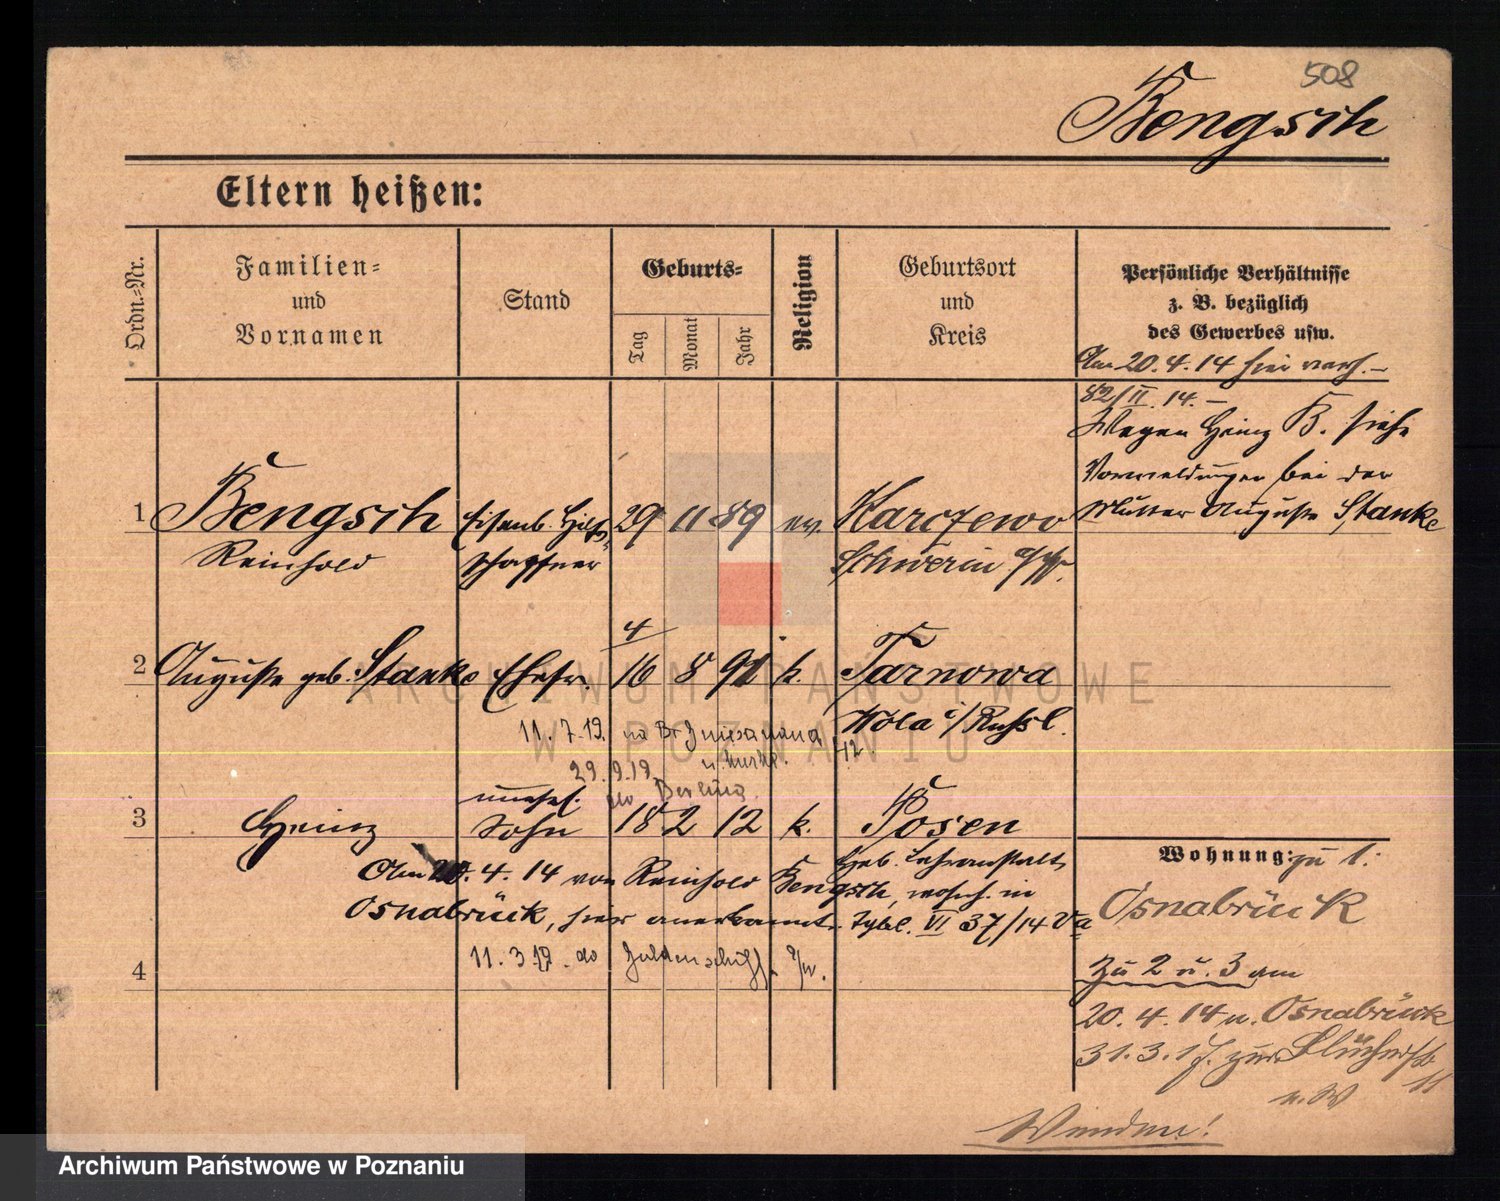 508
Bengsch
Eltern heißen:
Ordn.-Nr.
Familien-
und
Vornamen
Stand
Geburts-
Tag
Monat
Jahr
Religion
Geburtsort
und
Kreis
Persönliche Verhältnisse
z. B. bezüglich
des Gewerbes usw.
Am 20. 4. 14 hier verh. –
82/II. 14. –
Wegen Heinz B. siehe
Vormeldungen bei der
Mutter Auguste Stanke
1 Bengsch Eisenb. Hilfs- 29 11 89 ev. Karczewo
Reinhold schaffner Schwerin a/W.
4
2 Auguste geb. Stanke Ehefr. 16 8 91 k. Tarnowa
Wola i/Russl.
11. 7. 19. na
29. 9. 19.
do Berlina
unehel.
3 Heinz Sohn 18 2 12 k. Posen
Am 20. 4. 14 von Reinhold Bengsch, wohnh. in
Heb. Lehranstalt
Osnabrück, hier anerkannt. VI 37/14 Va
11. 3. 19. do
4
Wohnung: zu 1:
Osnabrück
Zu 2 u. 3 am
20. 4. 14 n. Osnabrück
31. 3. 17. zur Blücherstr
11
Wenden!
ARCHIWUM PAŃSTWOWE
W POZNANIU
Archiwum Państwowe w Poznaniu